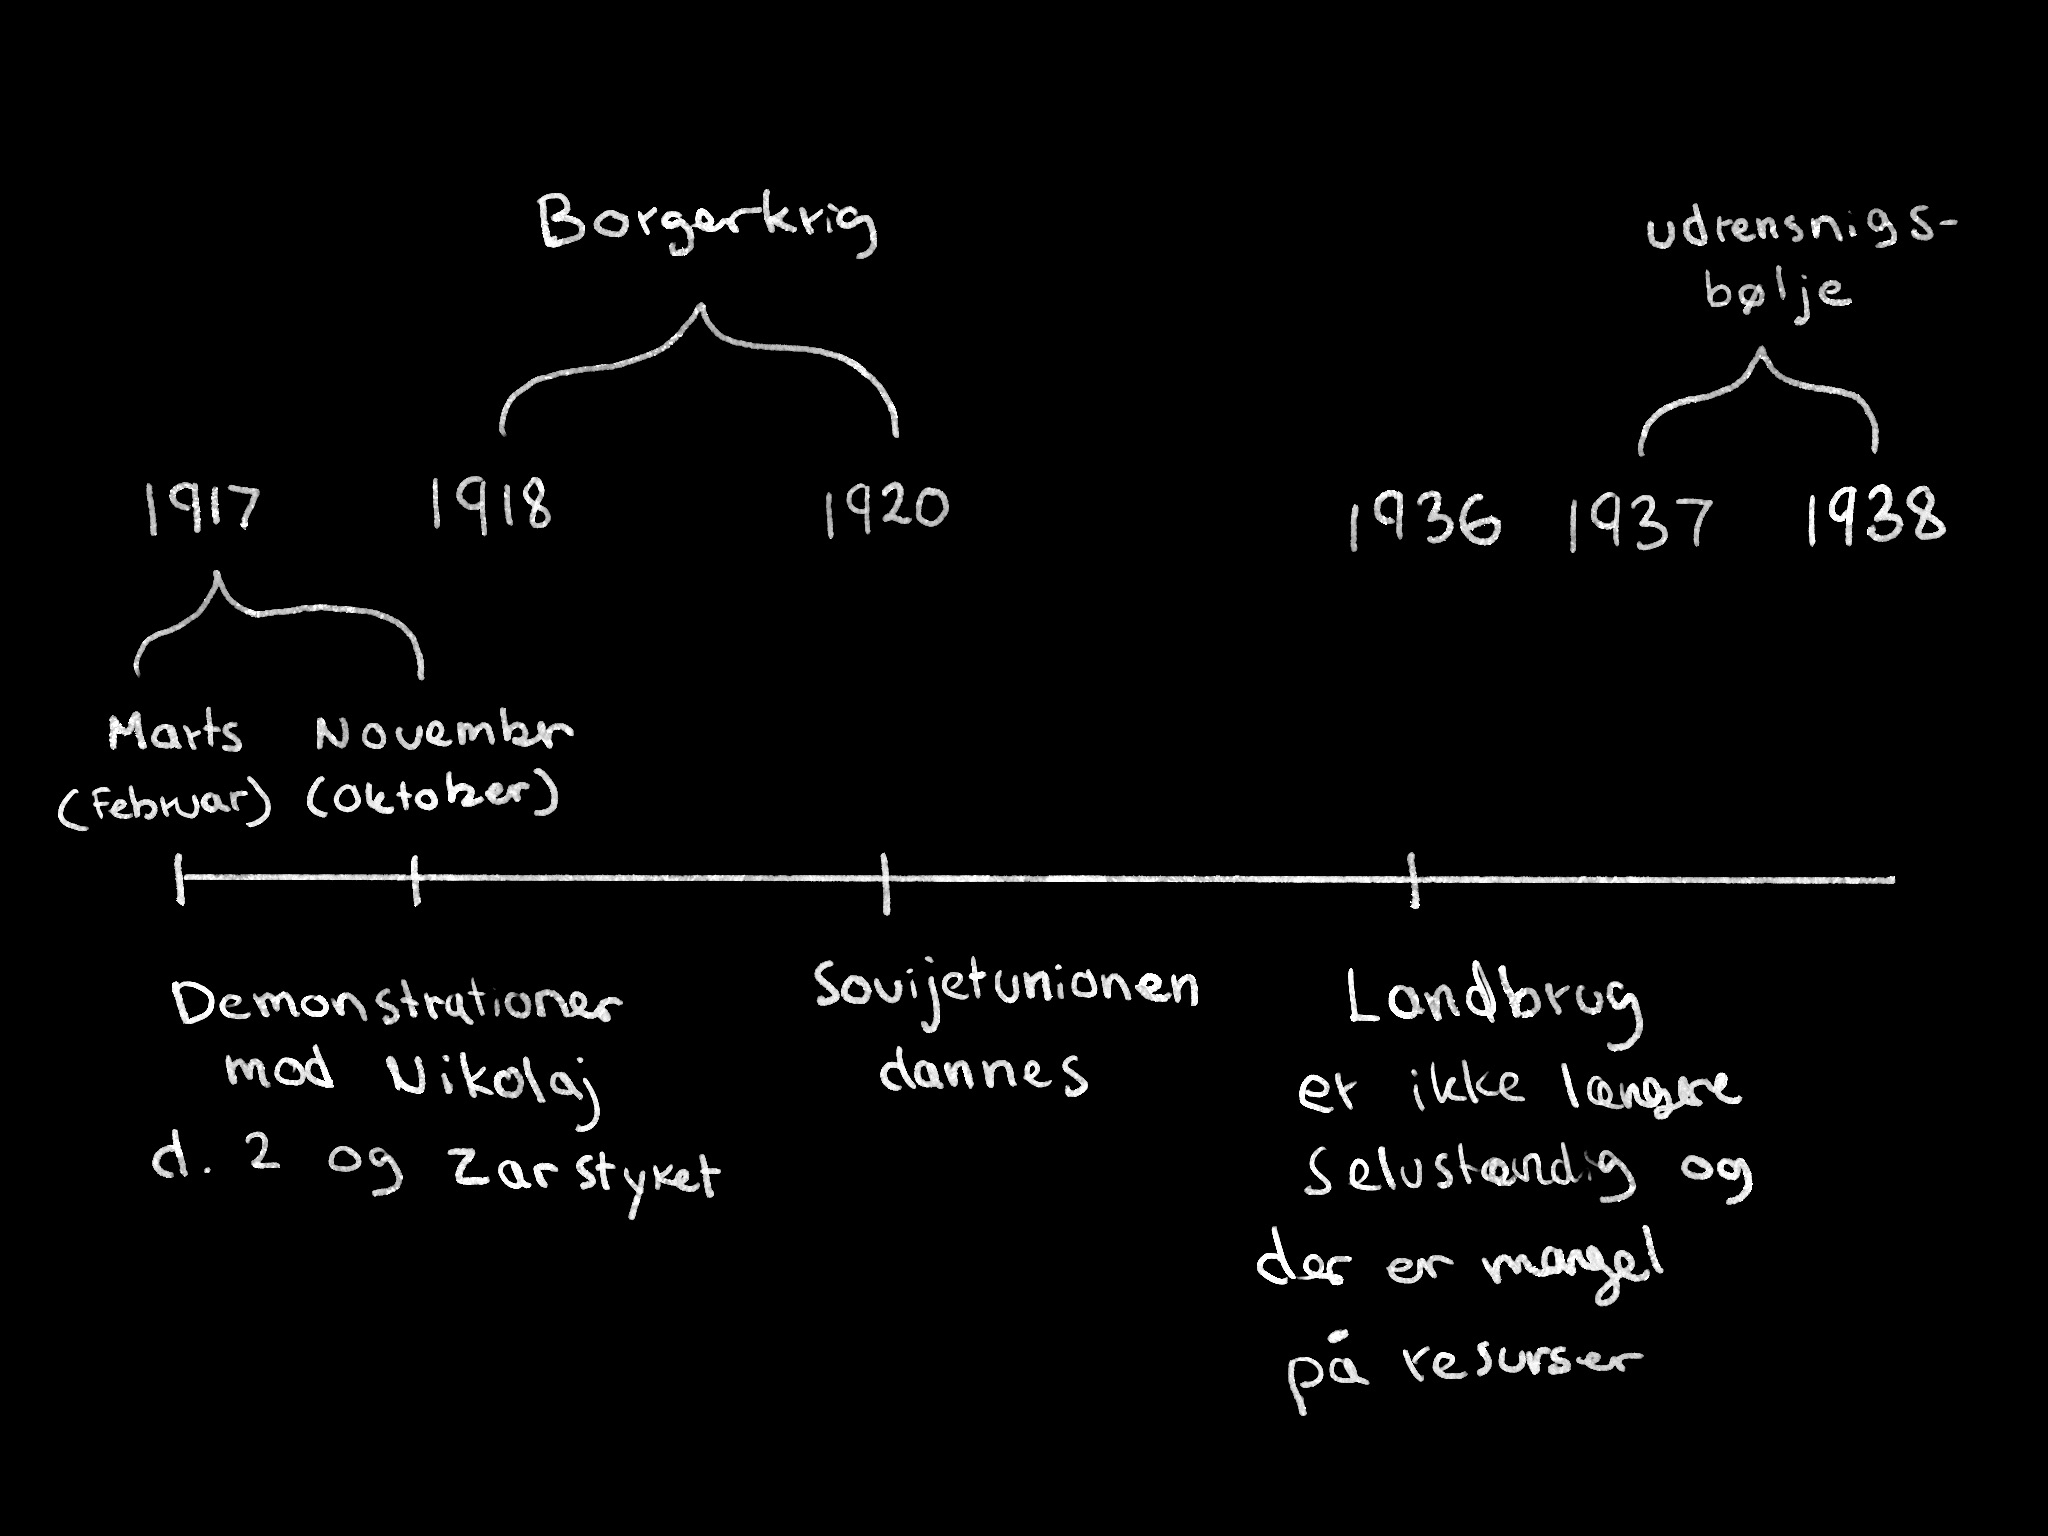 Borgerkrig
udrensnigs-
bølje
1917 1918 1920 1936 1937 1938
Marts November
(Februar) (Oktober)
Demonstrationer
mod Nikolaj
d. 2 og Zarstyket
Sovijetunionen
dannes
Landbrug
er ikke længre
Selvstændig og
der er mangel
på resurser